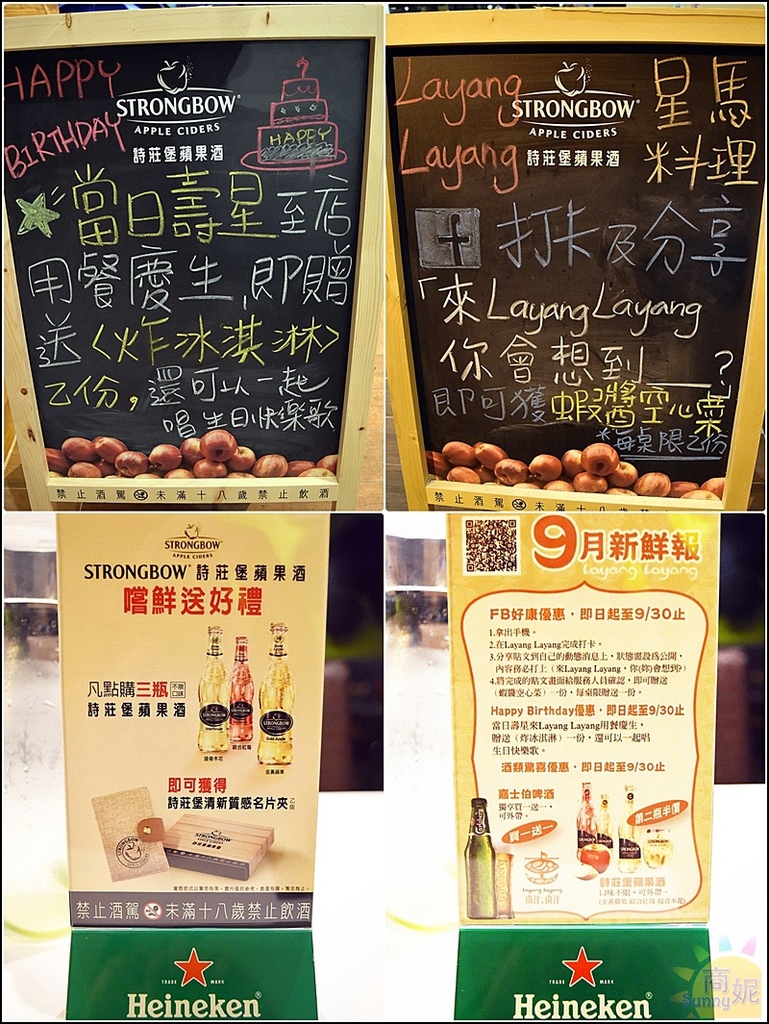 HAPPY
BIRTHDAY
STRONGBOW
APPLE CIDERS
詩莊堡蘋果酒
HAPPY
當日壽星至店
用餐慶生,即贈
送<炸冰淇淋>
乙份,還可以一起
唱生日快樂歌
禁止酒駕 未滿十八歲禁止飲酒
Layang
Layang
STRONGBOW
APPLE CIDERS
詩莊堡蘋果酒
星馬
料理
f 打卡及分享
「來LayangLayang
你會想到___?」
即可獲蝦醬空心菜
*每桌限乙份
禁止酒駕 未滿十八歲禁止飲酒
STRONGBOW
APPLE CIDERS
STRONGBOW® 詩莊堡蘋果酒
嚐鮮送好禮
凡點購三瓶 不限口味
詩莊堡蘋果酒
即可獲得
詩莊堡清新質感名片夾乙個
STRONGBOW
禁止酒駕 未滿十八歲禁止飲酒
TRADE MARK
Heineken®
9月新鮮報
layang layang
FB好康優惠・即日起至9/30止
1.拿出手機。
2.在Layang Layang完成打卡。
3.分享貼文到自己的動態消息上,狀態需設為公開,
內容務必打上(來Layang Layang,你(妳)會想到?)
4.將完成的貼文畫面給服務人員確認,即可贈送
(蝦醬空心菜)一份,每桌限贈送一份。
Happy Birthday優惠・即日起至9/30止
當日壽星來Layang Layang用餐慶生,
贈送(炸冰淇淋)一份,還可以一起唱
生日快樂歌。
酒類驚喜優惠・即日起至9/30止
嘉士伯啤酒
獨享買一送一,
可外帶。
買一送一
第二瓶半價
layang layang
詩莊堡蘋果酒
口味不限,可外帶。
TRADE MARK
Heineken®
商妮
Sunny